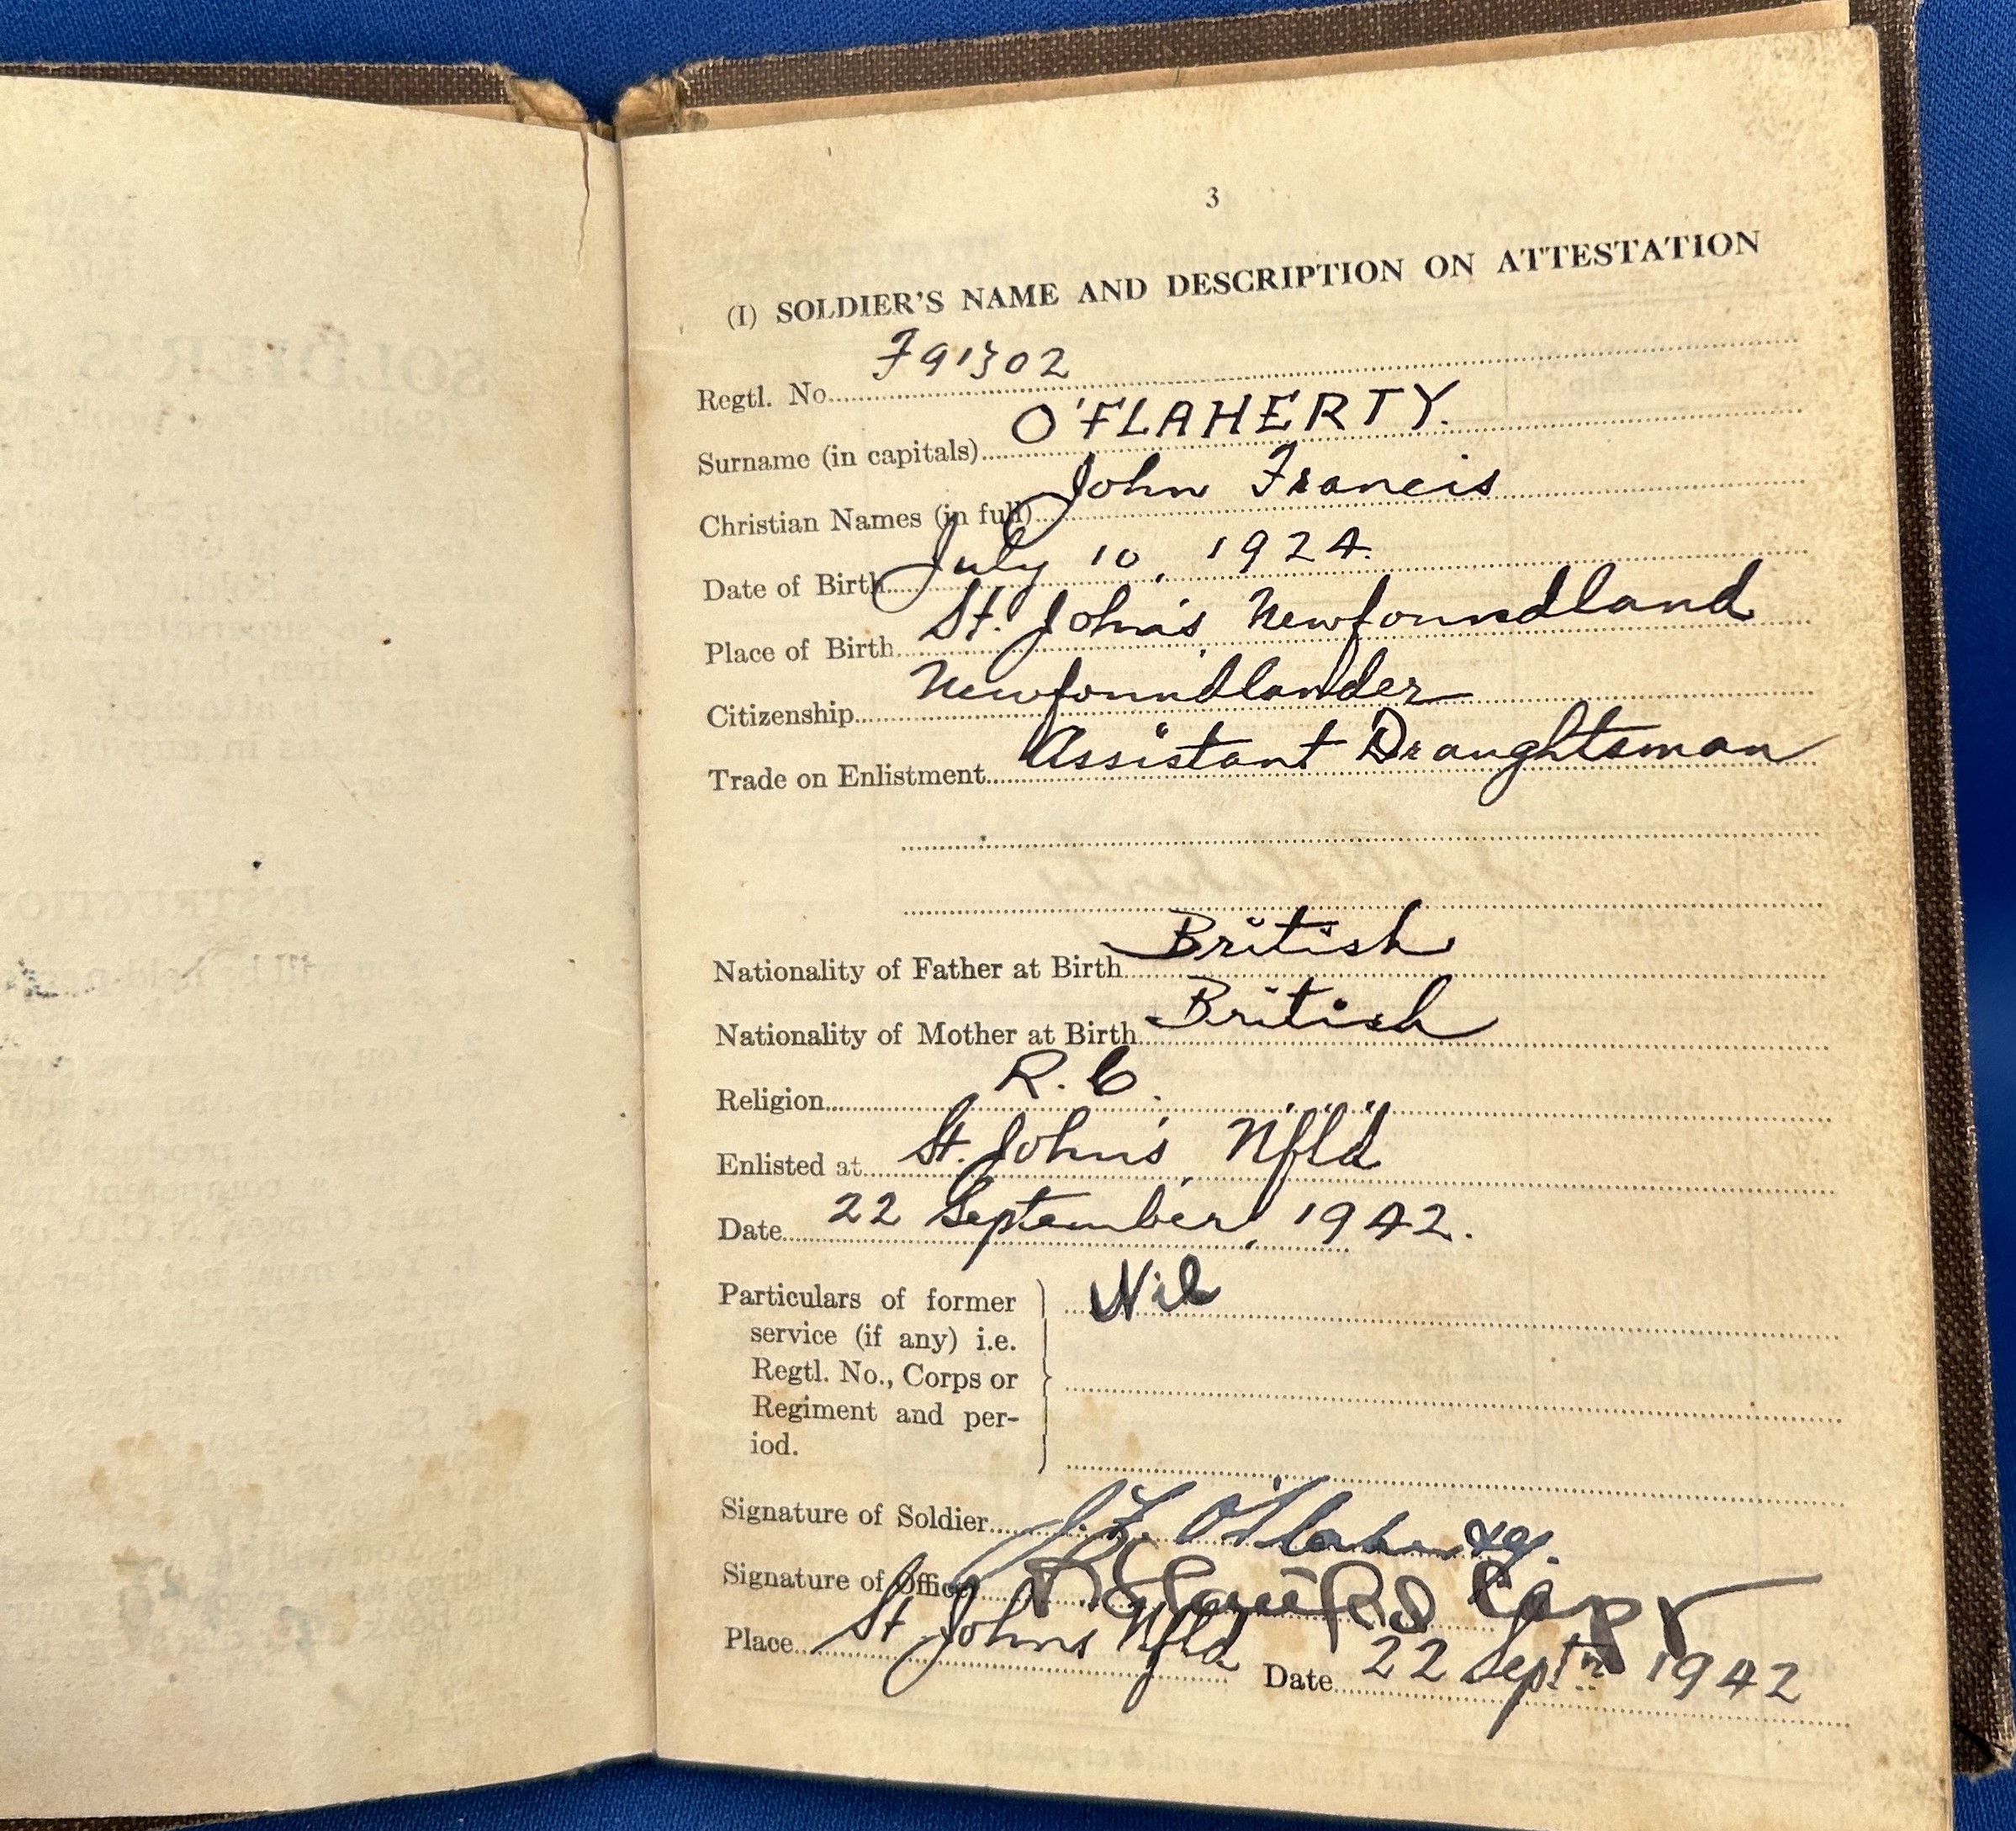 3
(I) SOLDIER'S NAME AND DESCRIPTION ON ATTESTATION
Regtl. No. F91302
Surname (in capitals) O'FLAHERTY.
Christian Names (in full) John Francis
Date of Birth July 10, 1924.
Place of Birth St. John's Newfoundland
Citizenship Newfoundlander
Trade on Enlistment Assistant Draughtsman
Nationality of Father at Birth British
Nationality of Mother at Birth British
Religion R.C.
Enlisted at St. John's, Nfld
Date 22 September, 1942.
Particulars of former Nil
service (if any) i.e.
Regtl. No., Corps or
Regiment and per-
iod.
Signature of Soldier J.F. O'Flaherty.
Signature of Officer Capt
Place St Johns Nfld Date 22 Septr 1942